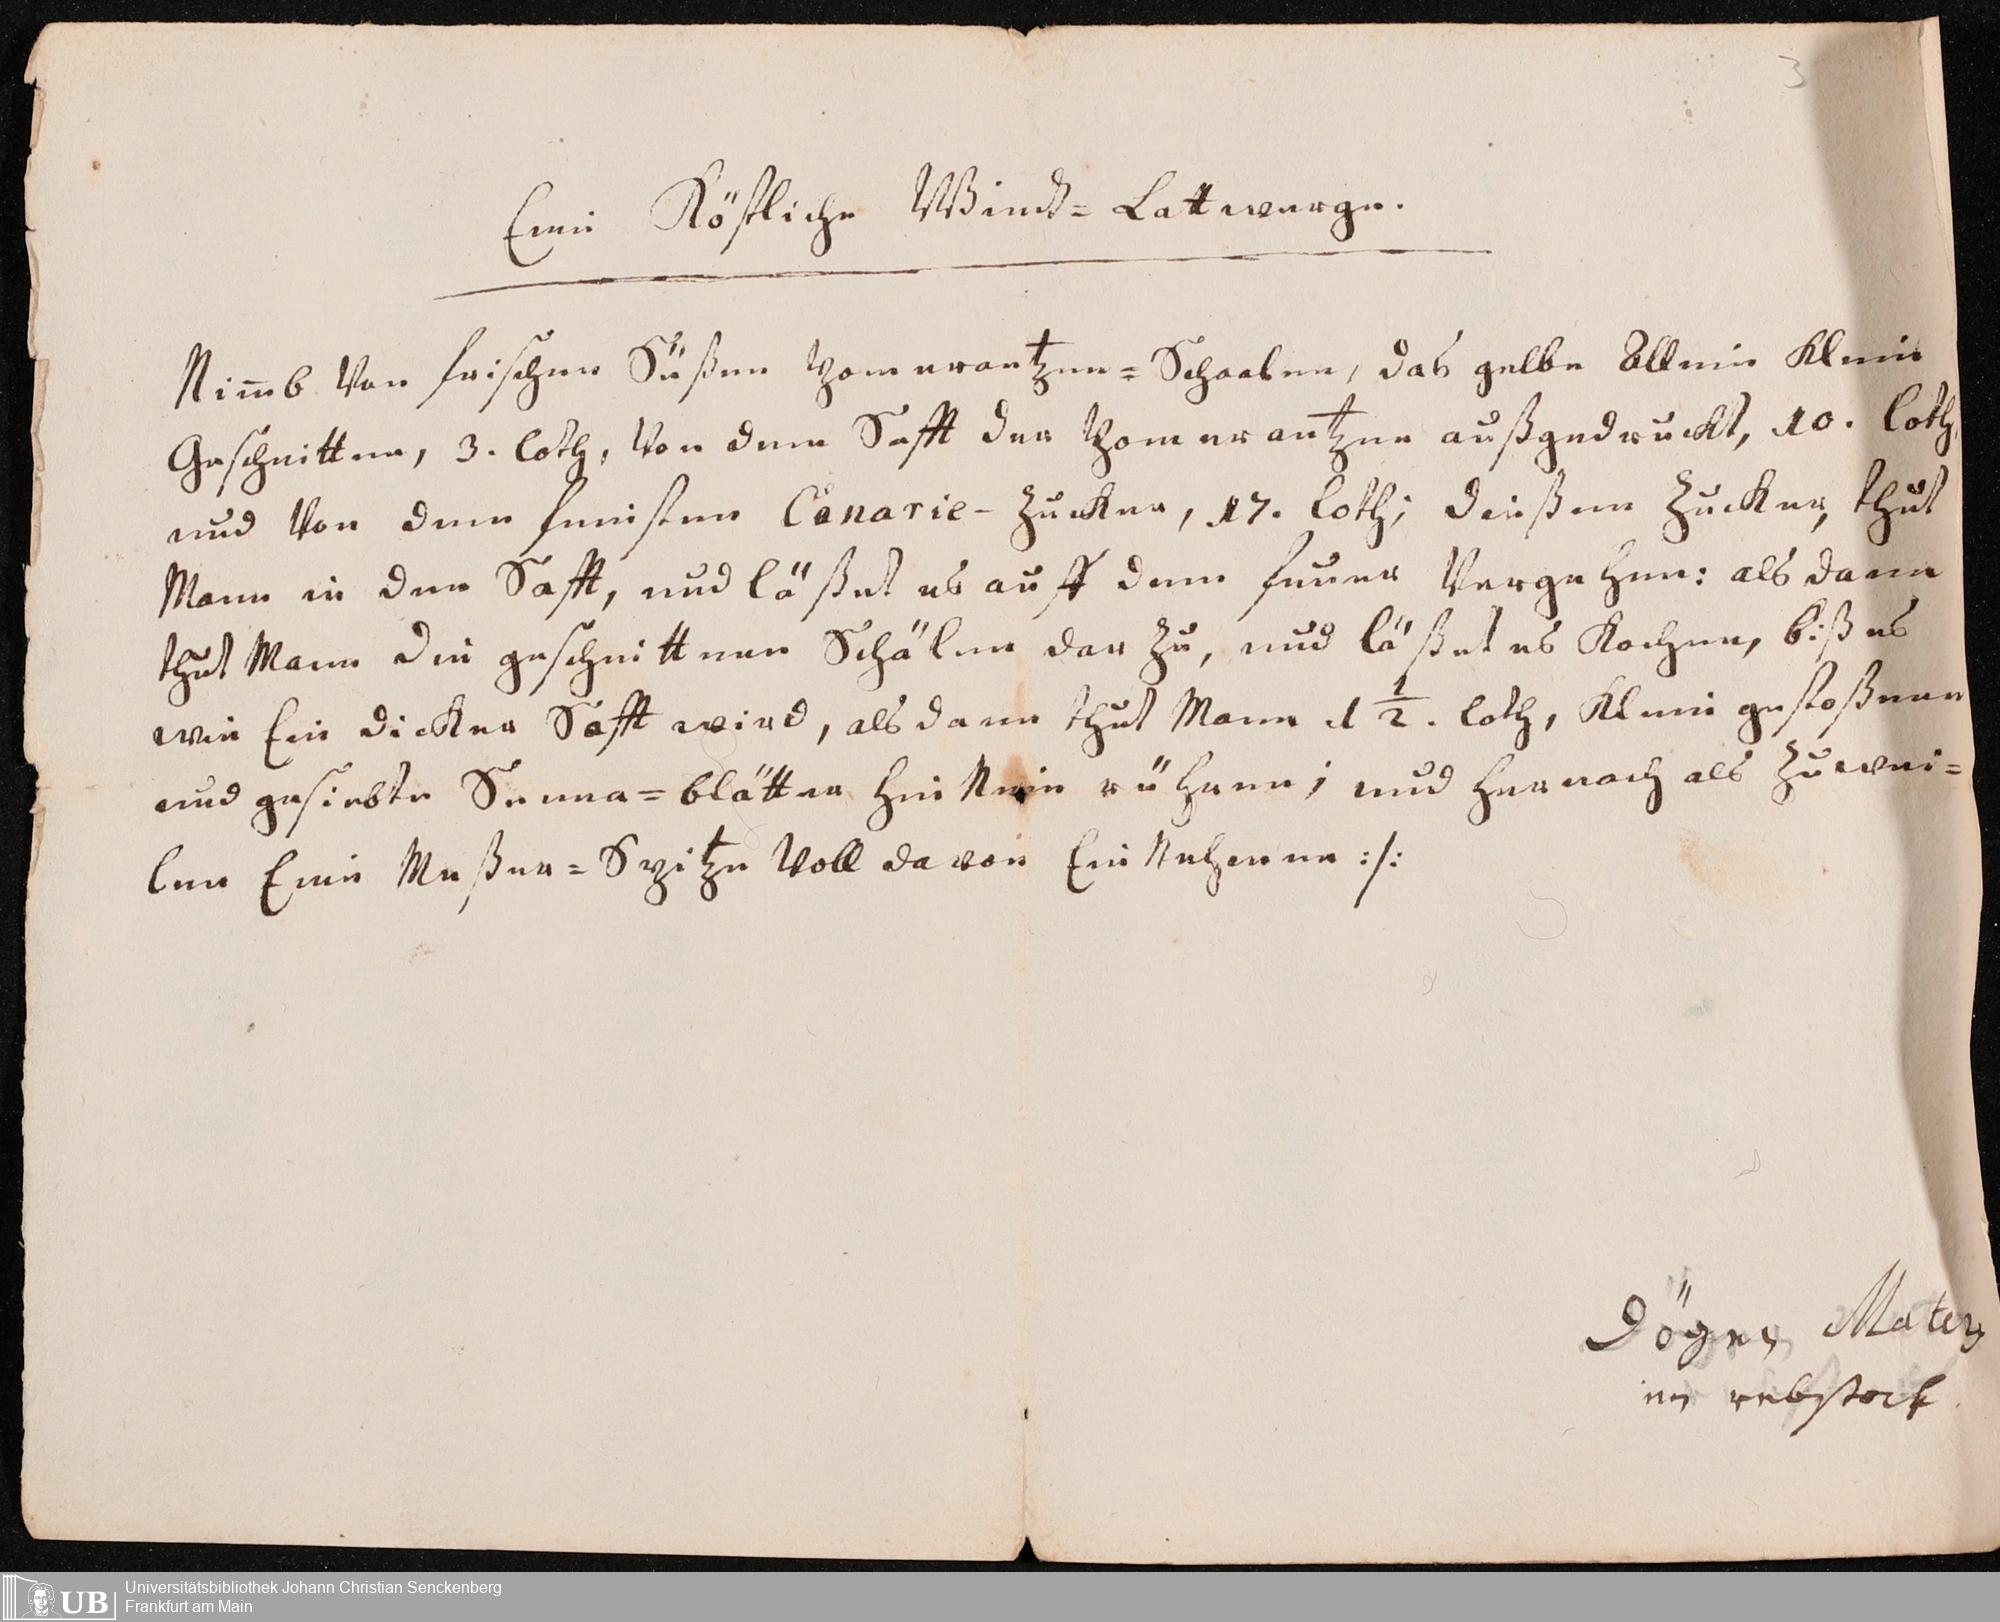 3
Eine Köstliche Windt= Lattwerge.
Nimb Von frischen Süßen Pomerantzen=Schaalen, das gelbe Allein Klein
Geschnitten, 3. loth, Von dem Safft der Pomerantzen außgedruckt, 10. loth,
und Von dem feinsten Canarie- Zucker, 17. loth; dießen Zucker, thut
Mann in den Safft, und läßet es auff dem feuer Vergehen: als dann
thut Mann die geschnittenen Schälen dar Zu, und läßet es Kochen, biß es
wie Ein dicker Safft wird, als dann thut Mann 1 1/2. loth, Klein gestoßenen
und gesiebte Senna=blätter hin Nein rühren; und hernach als Zuwei=
len Eine Meßer=Spitze Voll davon Ein Nehmen :/:
Döger Mater
im rebstock
Universitätsbibliothek Johann Christian Senckenberg
UB Frankfurt am Main